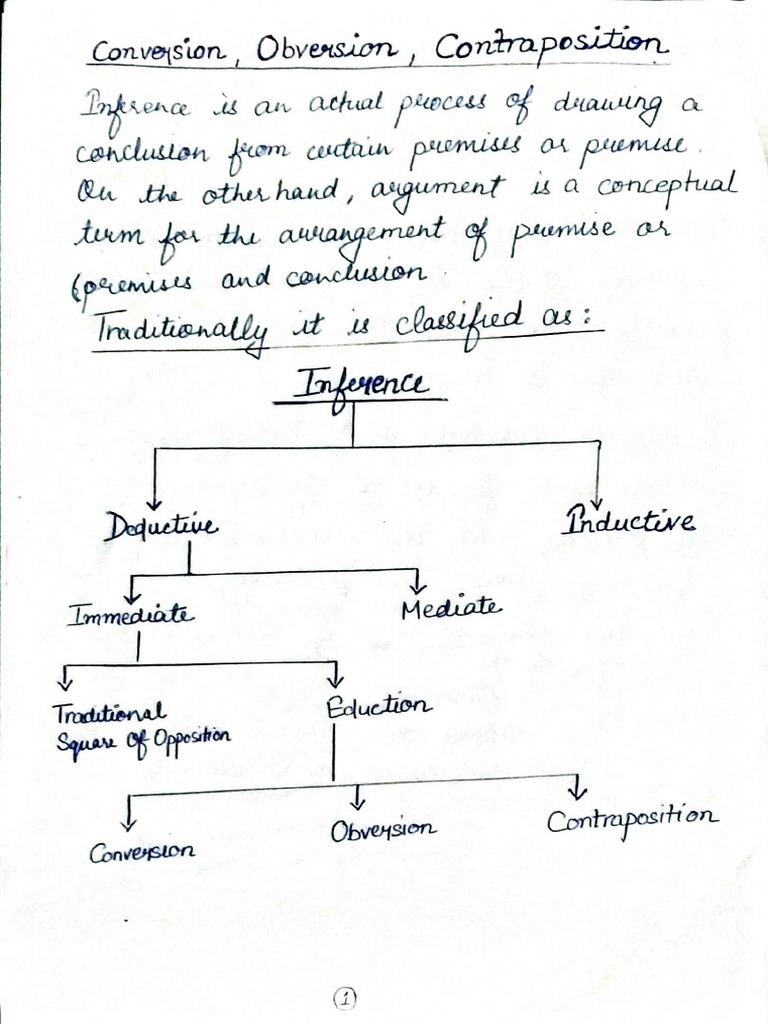 Conversion, Obversion, Contraposition
Inference is an actual process of drawing a
conclusion from certain premises or premise.
On the other hand, argument is a conceptual
term for the arrangement of premise or
(premises and conclusion.
Traditionally it is classified as:
Inference
Deductive Inductive
Immediate Mediate
Traditional Eduction
Square Of Opposition
Conversion Obversion Contraposition
1